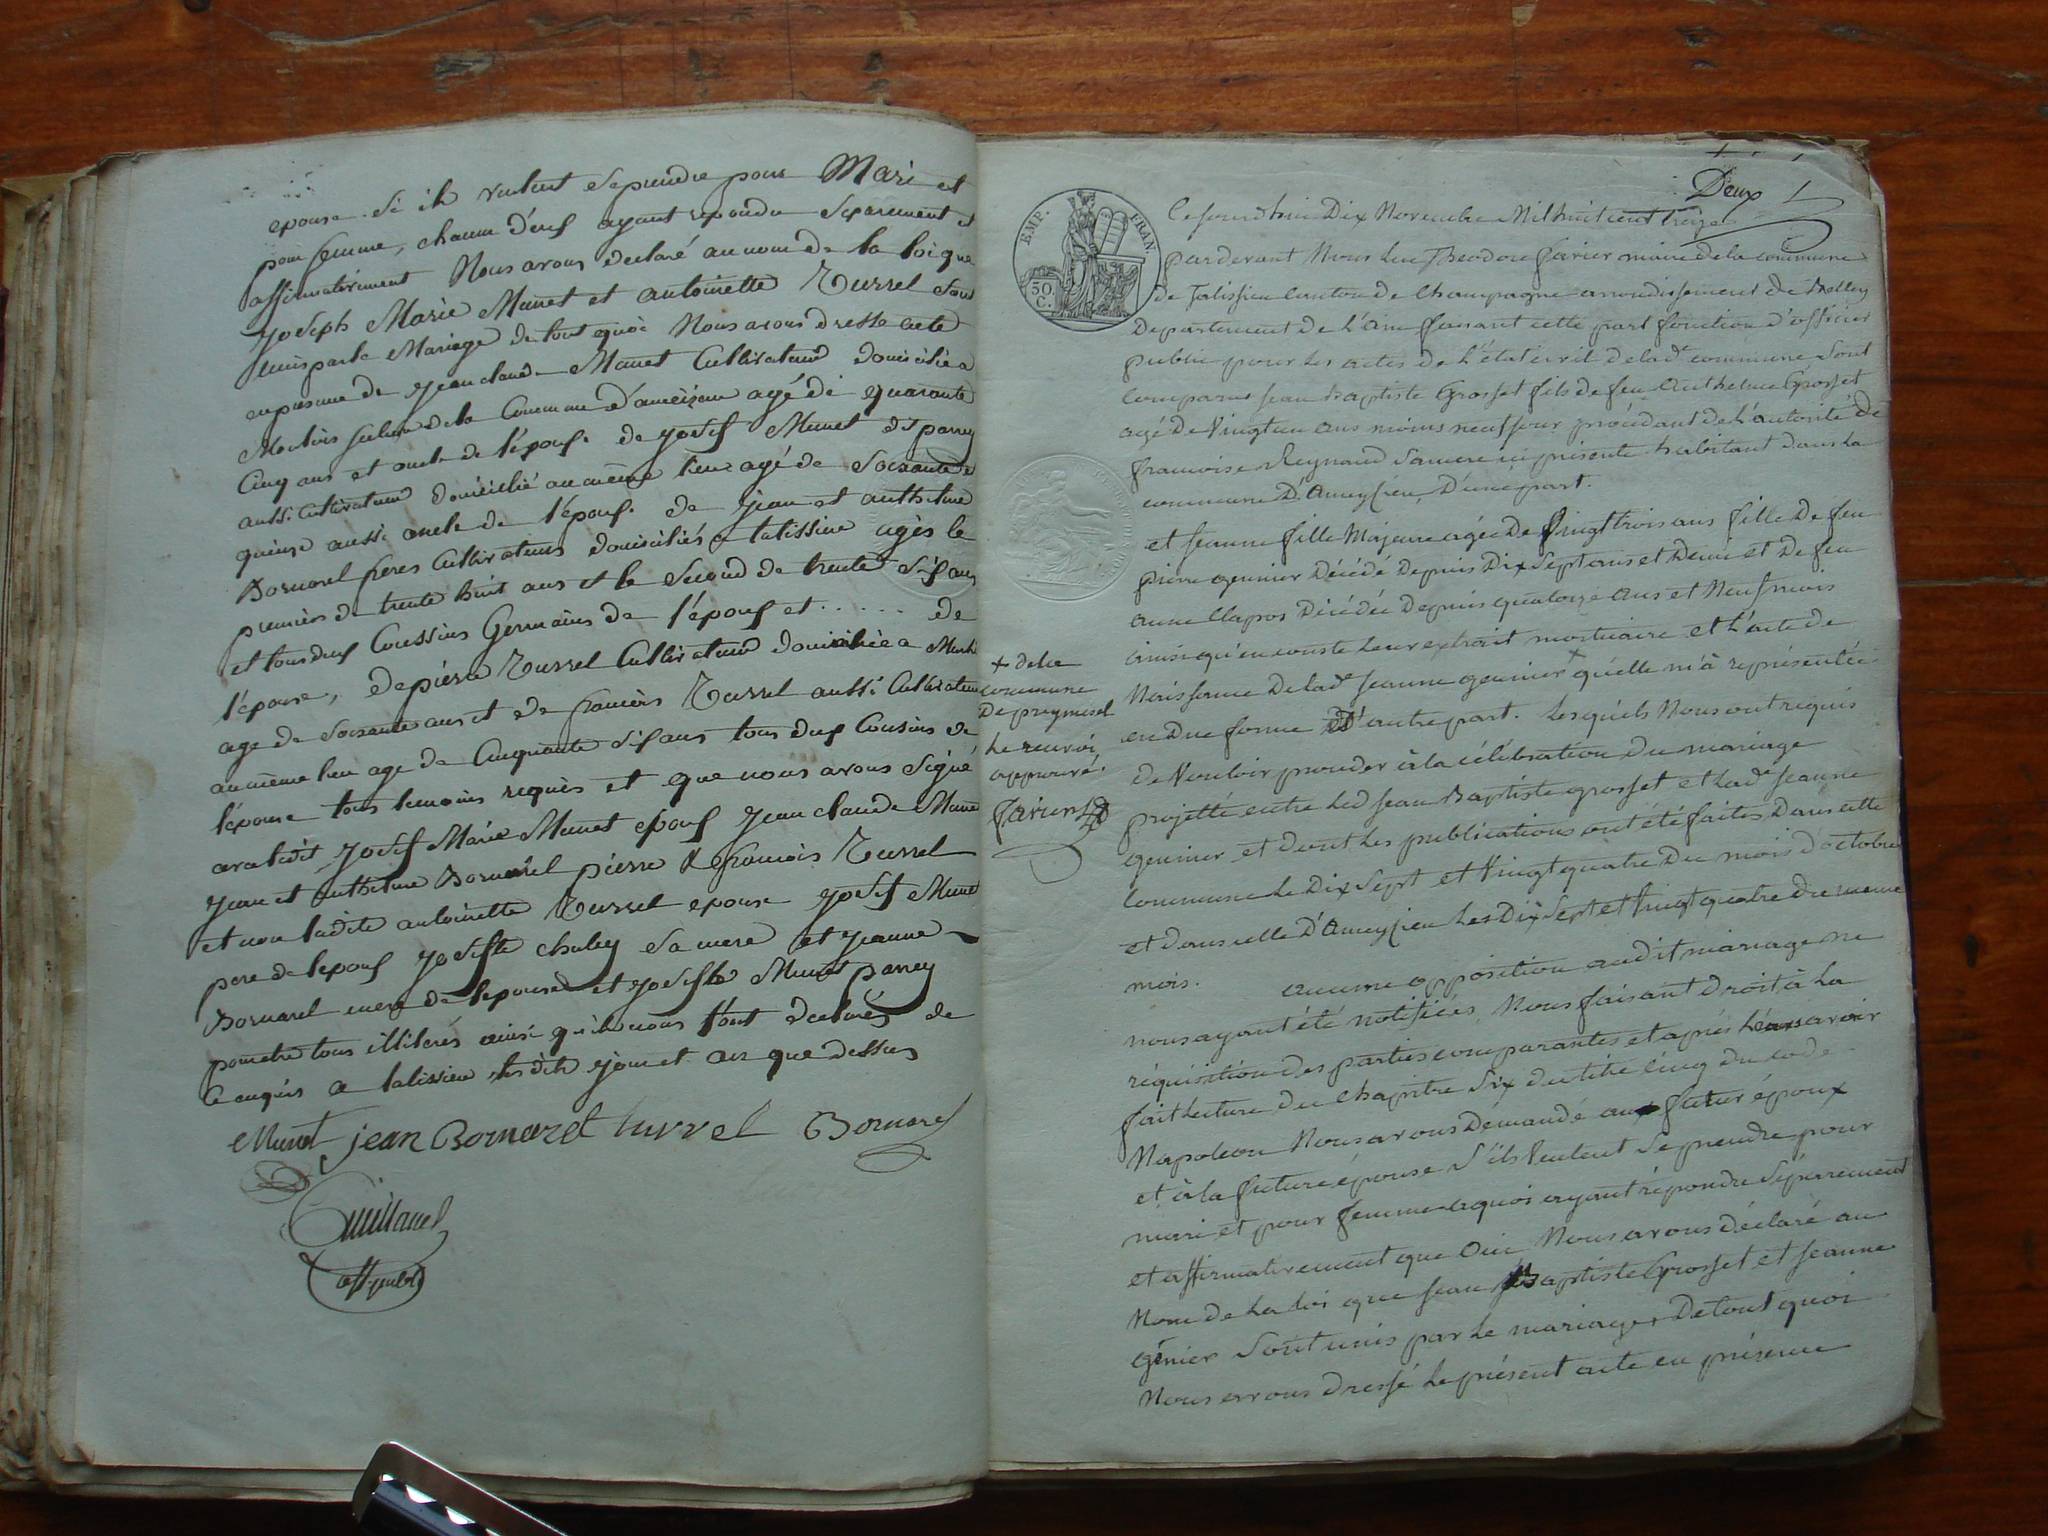 epouse. Si ils veulent se prendre pour Mari et
pour femme, chacun d'eux ayant repondu separement et
affirmativement Nous avons declaré au nom de la loi que
Joseph Marie Munet et antoinette Turrel sont
unis par le Mariage de tout quoi Nous avons dressé acte
en presence de jean claude Munet Cultivateur domicilié a
de la Commune d'ameizieu agé de quarante
Cinq ans et oncle de l'epoux. de josef Munet dit parrey
aussi cultivateur domicilié au même lieu agé de Soixante et
quinze aussi oncle de l'epoux. de jean et anthelme
Bornarel freres Cultivateurs domiciliés a talissieu agés le
premier de trente huit ans et le Second de trente six ans
et tous deux Coussins Germains de l'epoux et . . . . . de
l'épouse, de pierre Turrel Cultivateur domicilié a
age de Soixante ans et de francois Turrel aussi Cultivateur
au même lieu age de Cinquante six ans tous deux Cousins de
l'épouse tous temoins requis et que nous avons signé
avec ledit josef Marie Munet epoux jean claude Munet
jean et anthelme Bornarel pierre & francois Turrel
et non ladite antoinette Turrel epouse josef Munet
pere de l'epoux josefte chuley sa mere et jeanne
Bornarel mere de l'epouse et josefte Munet parrey
pour etre tous illiterés ainsi qu'ils nous l'ont declarés de
ce enquis a talissieu, les dits jour et an que dessus
Munet jean Bornarel turrel Bornarel
Guillanel
adj
Deux
EMP. FRAN.
30 C.
Cejourdhui Dix Novembre Mil huit cent treize
pardevant Nous Luc Theodore favier maire de la commune
de Talissieu Canton de Champagne arrondissement de Belley
Departement de l'ain faisant cette part fonction d'officier
public pour les actes de l'état civil de lade commune Sont
comparus jean Baptiste Grosset fils de feu Anthelme Grosset
agé De Vingt un ans moins neuf jour procédant de l'autorité de
francoise Reynaud Sa mere ici présente habitant dans la
commune D'Ameyzieu, D'une part.
et jeanne fille Majeure agée De Vingt trois ans fille De feu
pierre gennier Décédé Depuis Dix Sept ans et Demi et De feu
anne Clapos Décédée Depuis quatorze ans et Neuf mois
ainsi qu'en conste leur extrait mortuaire et l'acte de
Naissance De lade jeanne gennier + qu'elle m'à représentée
en Due forme D'autre part. Lesquels Nous ont requis
de Vouloir proceder à la célébration du mariage
projetté entre led jean Baptiste grosset et lade jeanne
gennier et dont les publications ont été faites Dans cette
Commune le Dix Sept et Vingt quatre Du mois d'octobre
et dans celle D'Ameyzieu Les Dix Sept et Vingt quatre du meme
mois. aucune opposition audit mariage ne
nous ayant été notifiées, Nous faisant droit à la
réquisition Des parties comparantes et après Leurs avoir
fait lecture Du Chapitre Six du titre Cinq du code
Napoleon Nous avons Demandé au futur époux
et à la future épouse S'ils Veulent Se prendre pour
mari et pour femme aquoi ayant répondu Séparement
et affirmativement que Oui Nous avons déclaré au
Nom de La Loi que jean Baptiste Grosset et jeanne
génier Sont unis par le mariage, De tout quoi
Nous avons dressé le présent acte en présence
+ de la
commune
De
Le renvoi
approuvé.
favier